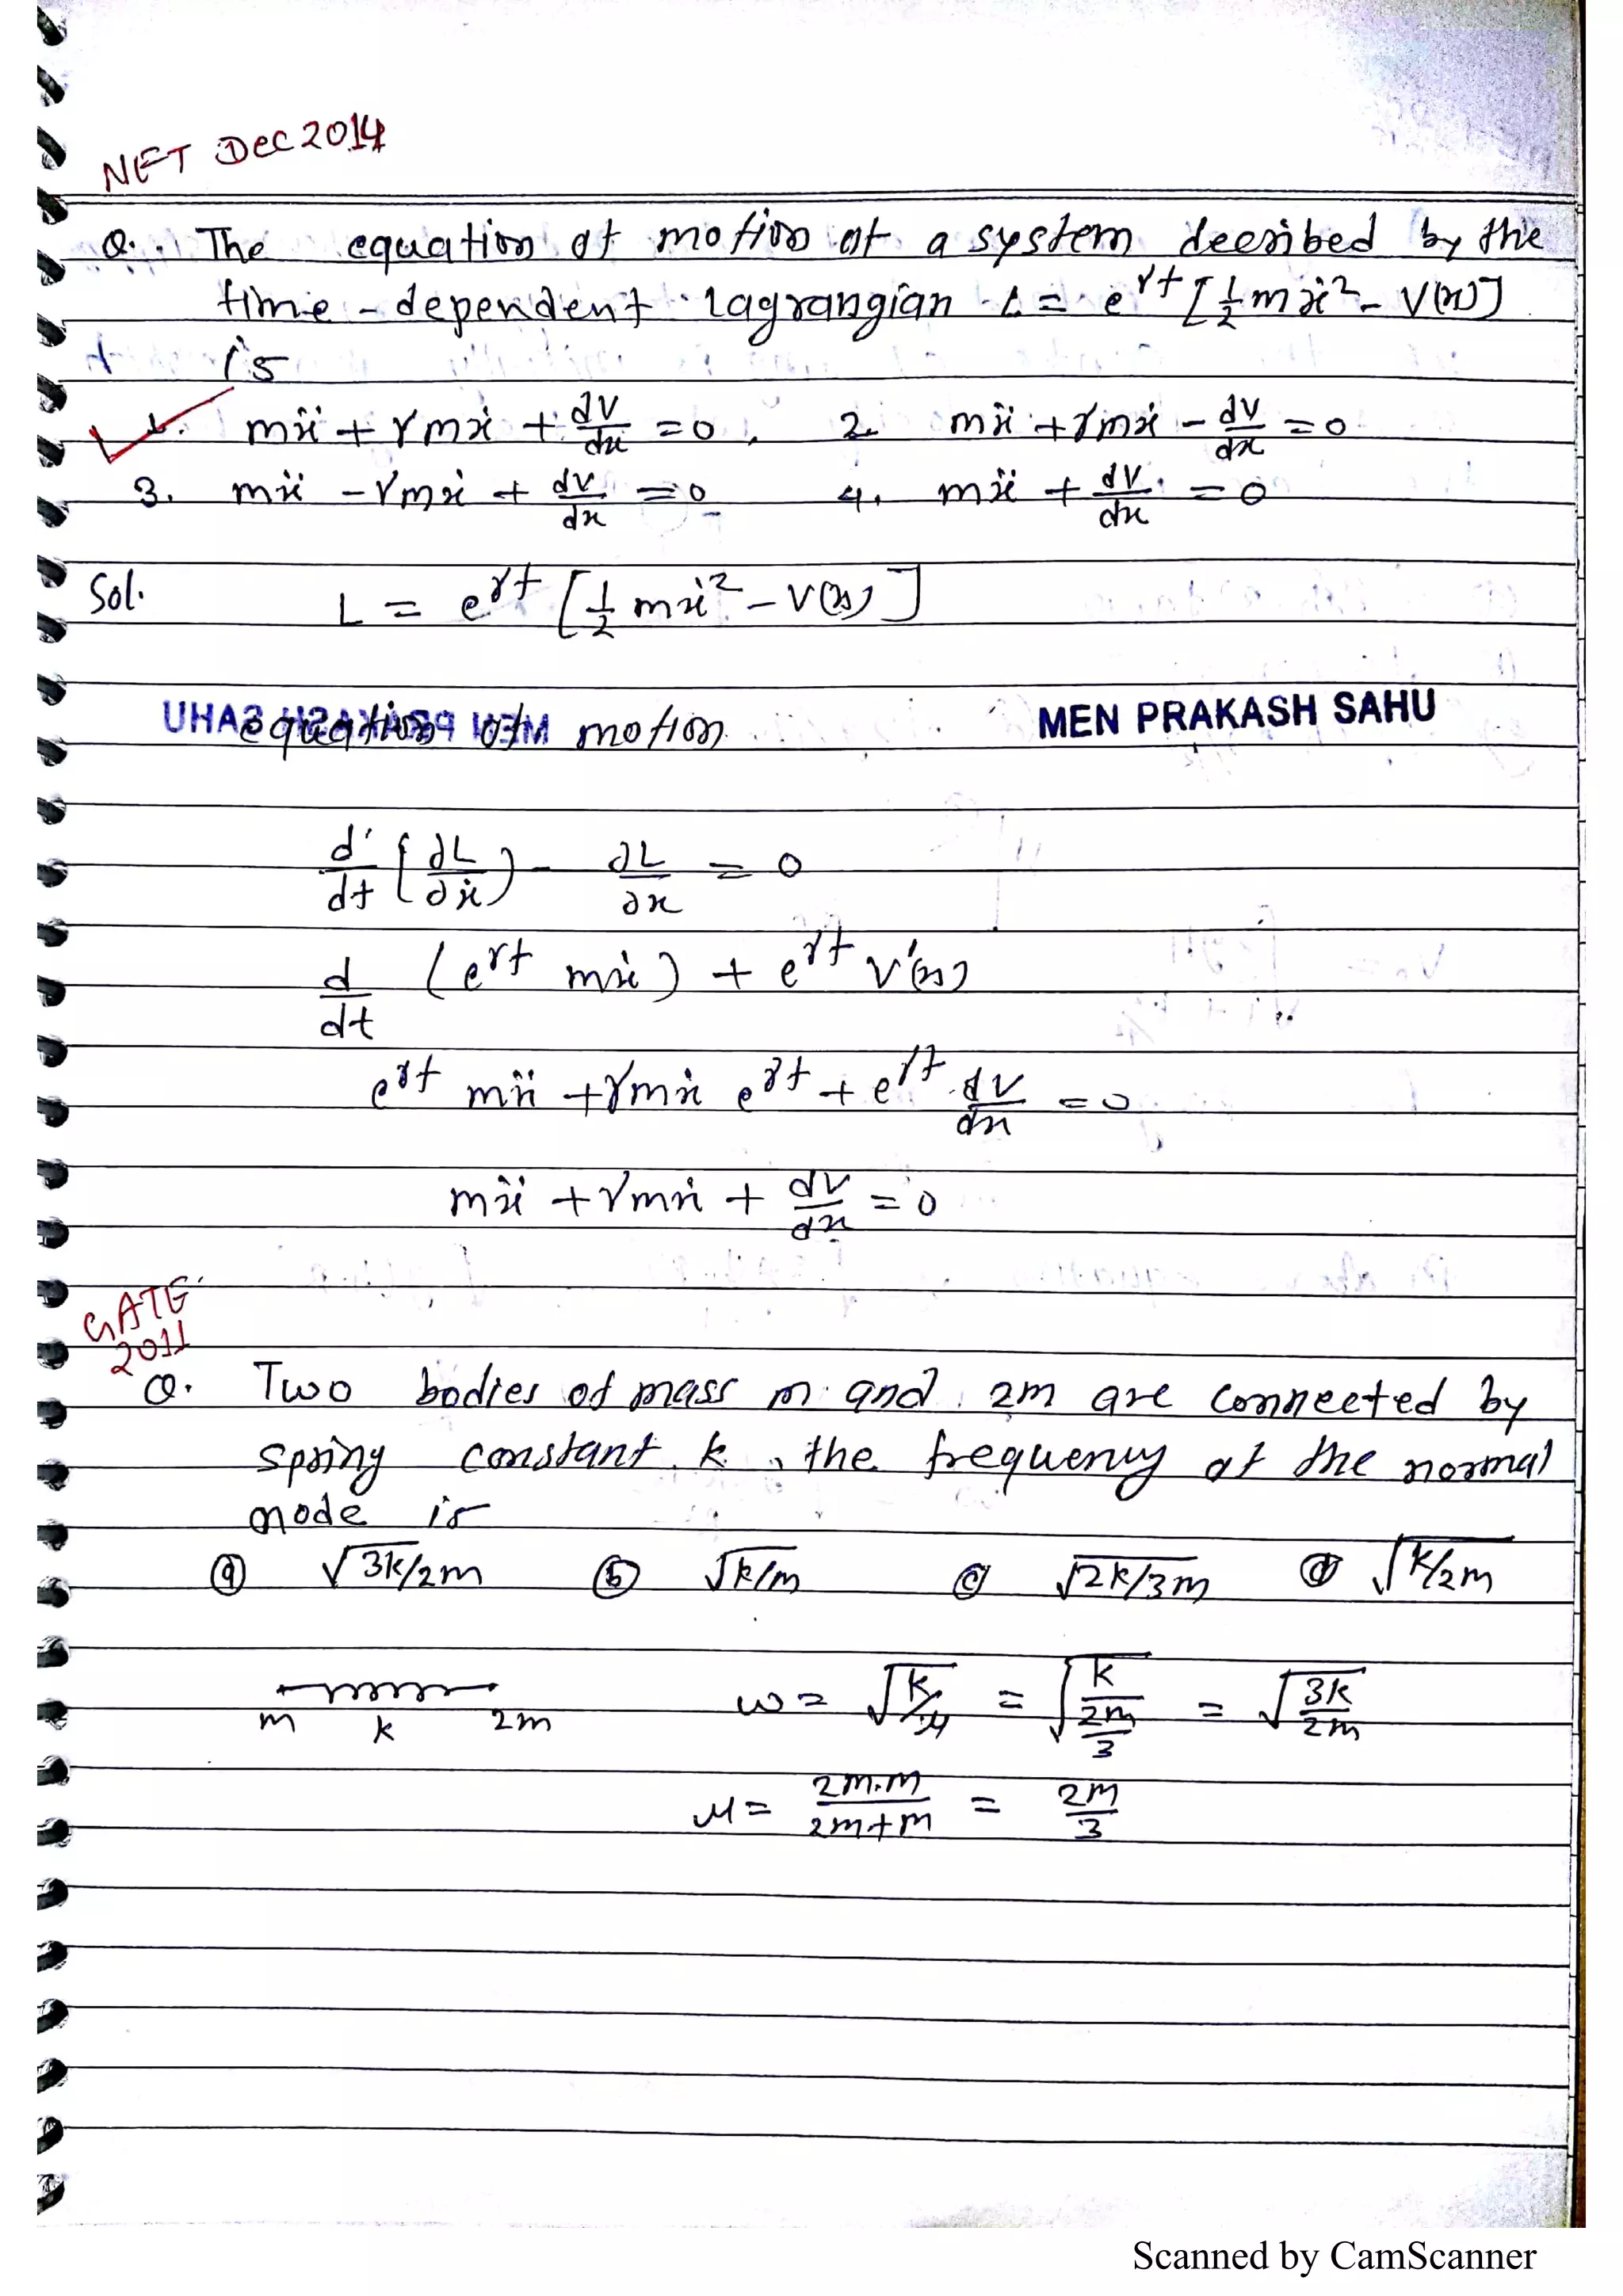 NET Dec 2014
Q. The equation of motion of a system deesribed by the
time-dependent Lagrangian L = e^γt [½ mẋ² - V(x)]
is
1. mẍ + γmẋ + dV/dx = 0, 2. mẍ + γmẋ - dV/dx = 0
3. mẍ - γmẋ + dV/dx = 0 4. mẍ + dV/dx = 0
Sol. L = e^γt [½ mẋ² - V(x)]
equation of motion MEN PRAKASH SAHU
d/dt (∂L/∂ẋ) - ∂L/∂x = 0
d/dt (e^γt mẋ) + e^γt V'(x)
e^γt mẍ + γmẋ e^γt + e^γt dV/dx = 0
mẍ + γmẋ + dV/dx = 0
GATE
2011
Q. Two bodies of mass m and 2m are connected by
spring constant k, the frequency of the normal
mode is
(a) √3k/2m (b) √k/m (c) √2k/3m (d) √k/2m
m k 2m ω = √k/μ = √(k/(2m/3)) = √(3k/2m)
μ = 2m.m/2m+m = 2m/3
Scanned by CamScanner